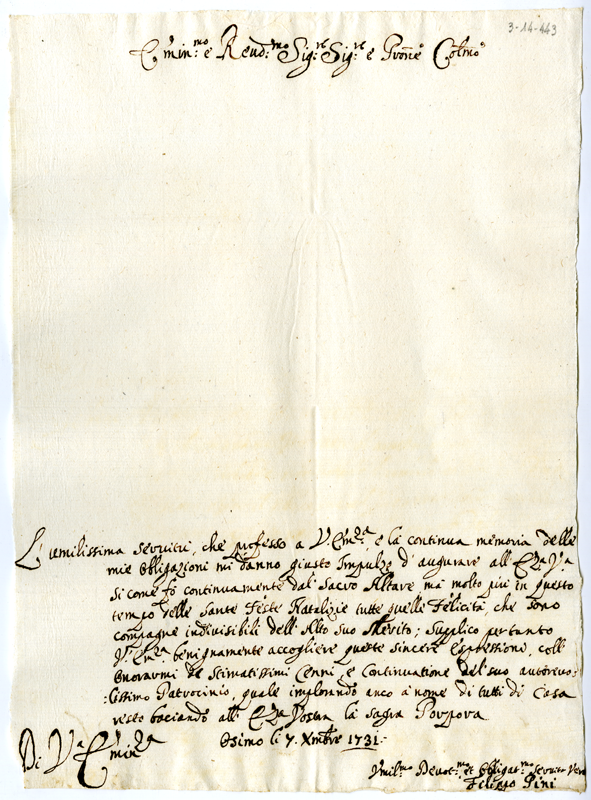 3-14-443
Emin:mo e Reud:mo Sig:re Sig:re e Prone Colmo
L'umilissima servitù, che professo a V. Em:za, e la continua memoria delle
mie obligazioni mi danno giusto Impulso d'augurare all' Em:za Va
si come fò continuamente dal Sacro Altare, ma molto più in questo
tempo delle Sante Feste Natalizie tutte quelle Felicità, che sono
compagne indivisibili dell' Alto suo Merito; Supplico per tanto
V. Em:za benignamente accogliere queste sincere Espressioni, coll'
Onorarmi de Stimatissimi Cenni, e Continuatione del suo autorevo:
:lissimo Patrocinio, quale implorando anco a nome di tutti di Casa
resto baciando all' Em:za Vostra la Sagra Porpora
Di Va Eminza
Osimo li 7. Xmbre 1731.
Vmil:mo Devot:mo et Obligat:mo Servitr Vero
Filippo Pini